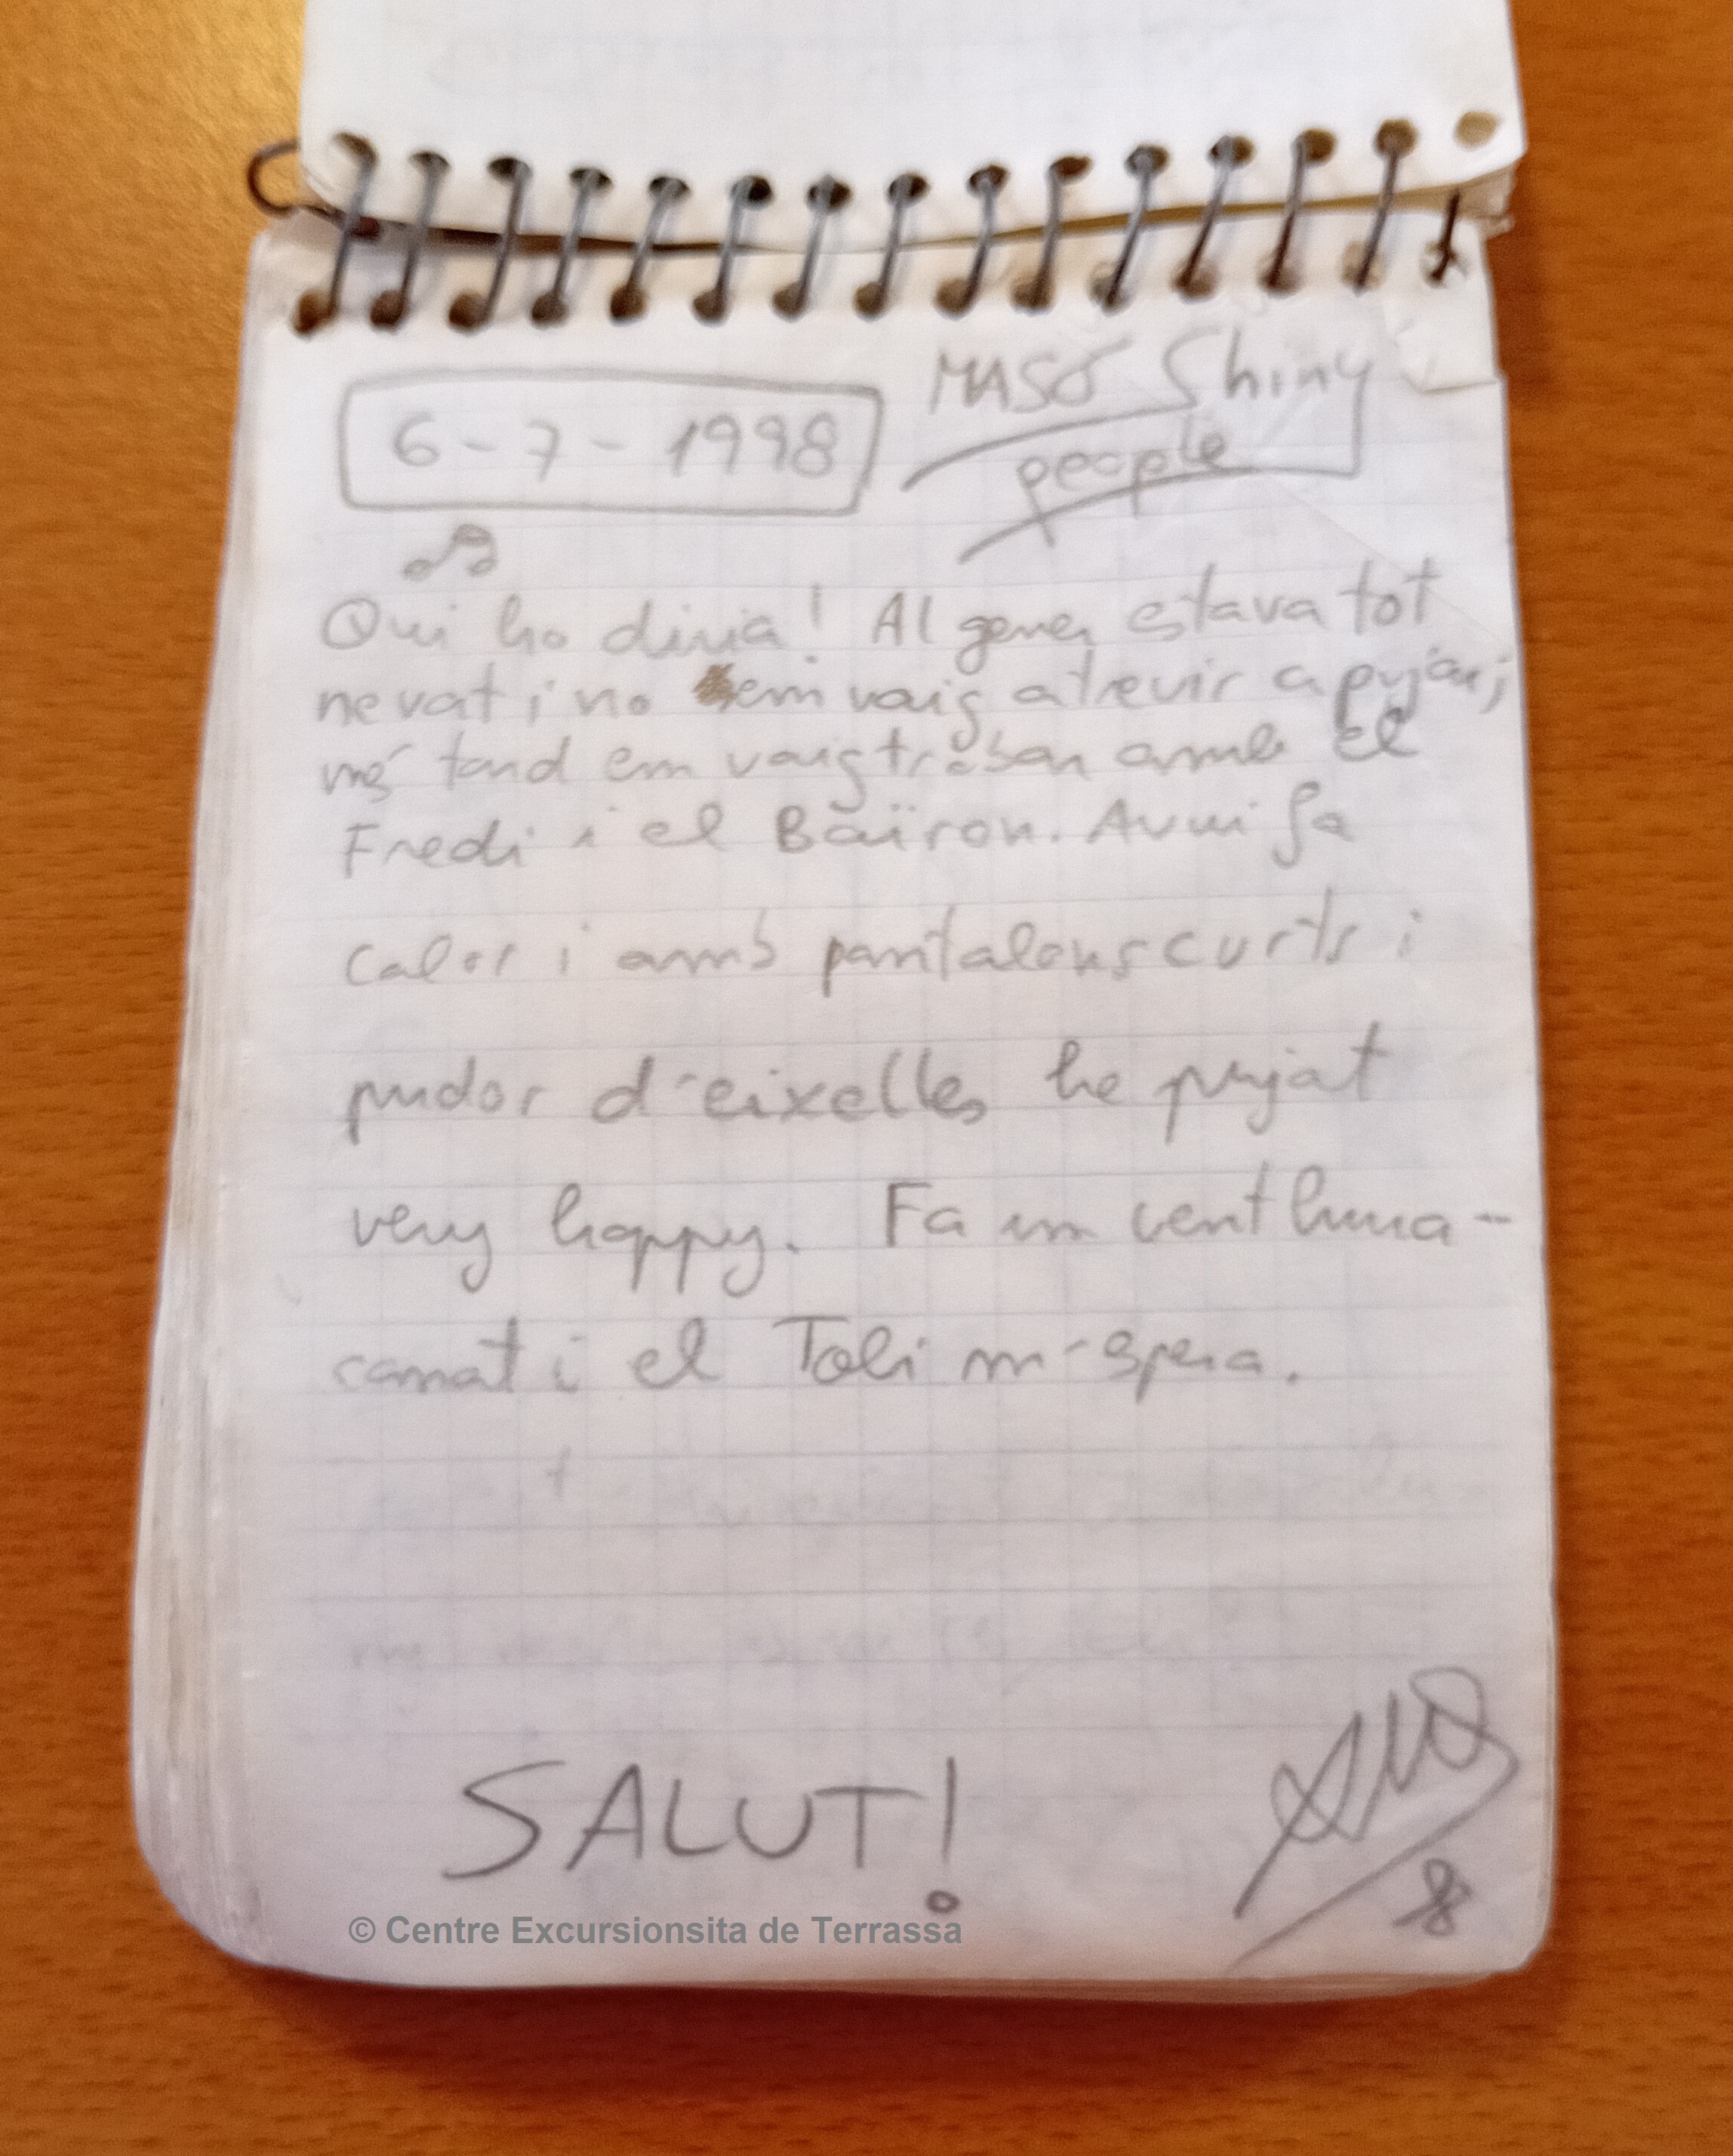 6-7-1998
MASÓ Shiny
people
Qui ho diria! Al gener estava tot
nevat i no em vaig atrevir a pujar;
més tard em vaig trobar amb El
Fredi i el Baïron. Avui fa
calor i amb pantalons curts i
pudor d'eixelles he pujat
very happy. Fa un vent hura-
canat i el Toli m'espera.
SALUT!
© Centre Excursionsita de Terrassa